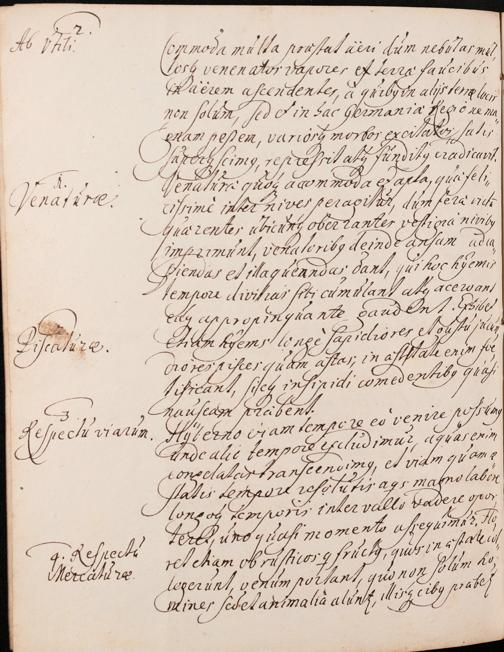 2.
Ab Vtili.
Commoda multa præstat aëri dum nebulas ma-
losq venenatos vapores ex terræ faucibus
in aërem ascendentes, à quibus in alijs terræ locis
non solum, sed et in hac Germaniæ Regione ma-
gnam pestem, variosq morbos excitatos satis
superq scimus, repressit atq funditus eradicavit.
Venaturæ.
Venaturæ quoq accommoda et apta, quia feli-
cissimè inter nives peragitur, dum feræ victū
quærentes ubicunq oberrantes vestigia nivibus
imprimunt, venatoribus deinde ansam
et dant, qui hoc hyemis
tempore divitias sibi cumulant atq acervant
eaq appropinquante gaudent. Exhibet
Piscaturæ.
etiam hyems longè sapidiores et
diores pisces quam æstas, in æstate enim foe-
tificant, sicq insipidi comedentibus quasi
nauseam præbent.
3
Respectu viarum.
Hyberno etiam tempore eò venire possumus
unde alio tempore excludimur, aquas enim
congelatas transcendimus, et viam quam æ-
statis tempore resolutis aqs magno labore
longoq temporis intervallo vadere opor-
teret, uno quasi momento assequimur.
4. Respectu
Mercaturæ
ret etiam ob rusticos q fructus, quos in æstate col-
legerunt, venum portant, quo non solum ho-
mines sed et animalia aluntur, illisq cibus præbet